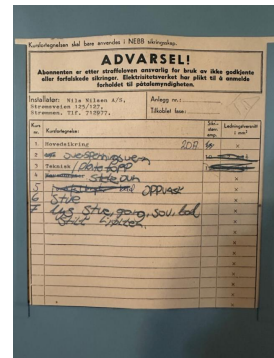 Kursfortegnelsen skal bare anvendes i NEBB sikringsskap.
ADVARSEL!
Abonnenten er etter straffeloven ansvarlig for bruk av ikke godkjente
eller forfalskede sikringer. Elektrisitetsverket har plikt til å anmelde
forholdet til påtalemyndigheten.
Installatør: Nils Nilsen A/S,
Strømsveien 125/127,
Strømmen, Tlf. 712077,
Anlegg nr.:
Tilkoblet fase:
Kurs nr. Kursfortegnelse: Sikr. strøm amp. Ledningstverrsnitt i mm²
1 Hovedsikring 20A x
2 overspenningsvern x
3 Teknisk / platetopp
4 Steikeovn x
5 OPPVASK x
6 Stue x
7 Lys Stue, gang, sov, bad x
x
x
x
x
x
x
x
x